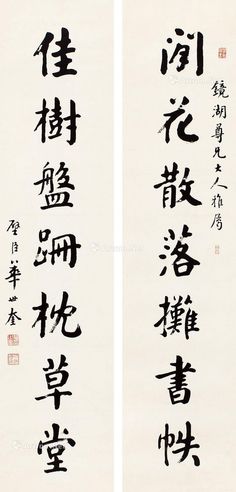 鏡湖尊兄大人雅屬
閒花散落攤書帙
佳樹盤跚枕草堂
璧臣華世奎